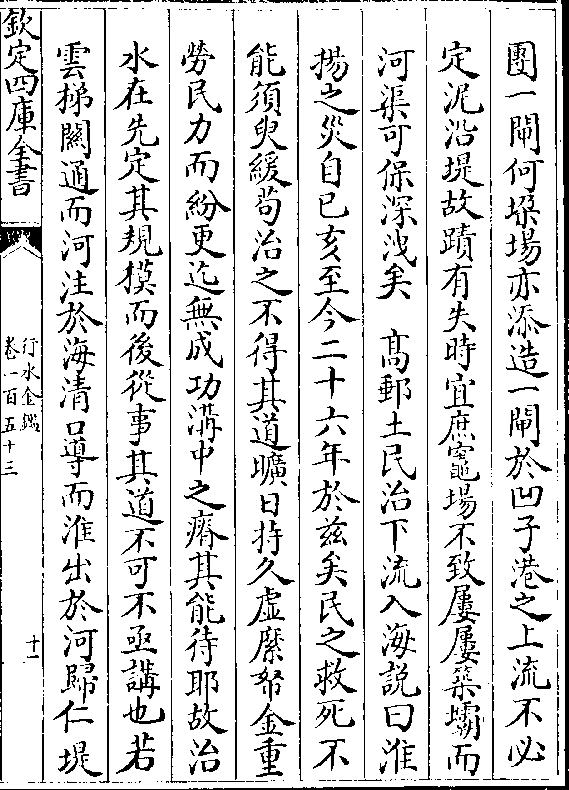 團一閘何垜場亦添造一閘於凹子港之上流不必
定泥沿堤故蹟有失時宜庶竈場不致屢屢築壩而
河渠可保深洩矣　高郵土民治下流入海説曰淮
揚之災自已亥至今二十六年於兹矣民之救死不
能須臾緩苟治之不得其道曠日持久虚縻帑金重
勞民力而紛更迄無成功溝中之瘠其能待耶故治
水在先定其規模而後從事其道不可不亟講也若
雲梯關通而河注於海清口導而淮出於河歸仁堤
欽定四庫全書
行水金鑑
卷一百五十三
十一